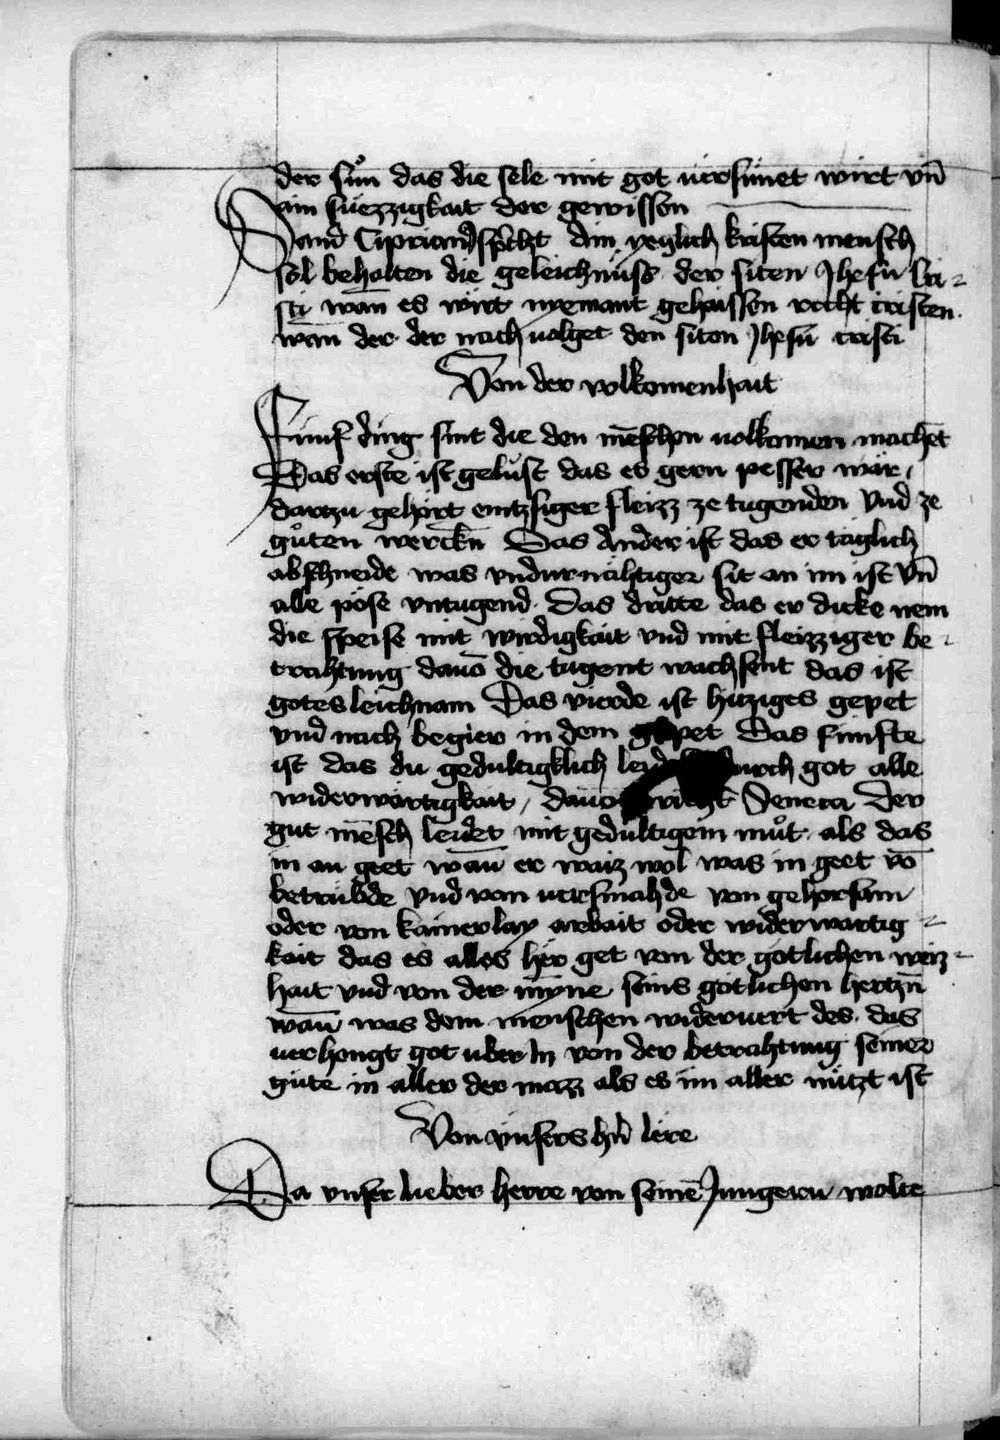 der sůn das die sele mit got versünet wirt vn̄
ain süezzigkait der gewissen
Sand Ciprian9 spͥcht Ain yeglich kristen mensch
sol behalten die geleichnüss der siten Jhesu cri-
sti wan̄ es wirt nyemant gehaissen recht cristen.
wan̄ der der nach uolget den siten Jhesu cristi
Von der volkomenhait
Fünf ding sint die den mēschen uolkomen machēt
Das erste ist gelu̇st das es gern pesser wär,
dartzu gehört emtzsiger fleizz ze tugenden Vnd ze
gůten werckn̄ Das Ander ist das er täglich
abschneide was vndurnähtiger sit an im ist Vn̄
alle pöse vntugend. Das dritte das er dicke nem
die speise mit wirdigkait vnd mit fleizziger be-
trachtung dauō die tugent wachsent das ist
gotes leichnam Das vierde ist hitziges gepet
vnd nach begier in dem gepet Das fünfte
ist das du gedultigklich durch got alle
widerwärtigkait, dauō spricht Seneca Der
gut mēsch leydet mit gedultigem můt. als das
in an geet wan̄ er waiz wol was in geet vō
betrübde vnd von uersmähde von gehorsam
oder von kainerlay arbait oder widerwärtig-
kait das es alles her get von der götlichen weiz-
hait vnd von der myn̄e seins götlichen hertzn̄
wan̄ was dem menschen wideruert des. das
uerhengt got uber In von der betrachtung seiner
güte in aller der mazz als es im aller nützt ist
Von vnsers hr̄n lere
Da vnser lieber herre von seinē Jungern wolte